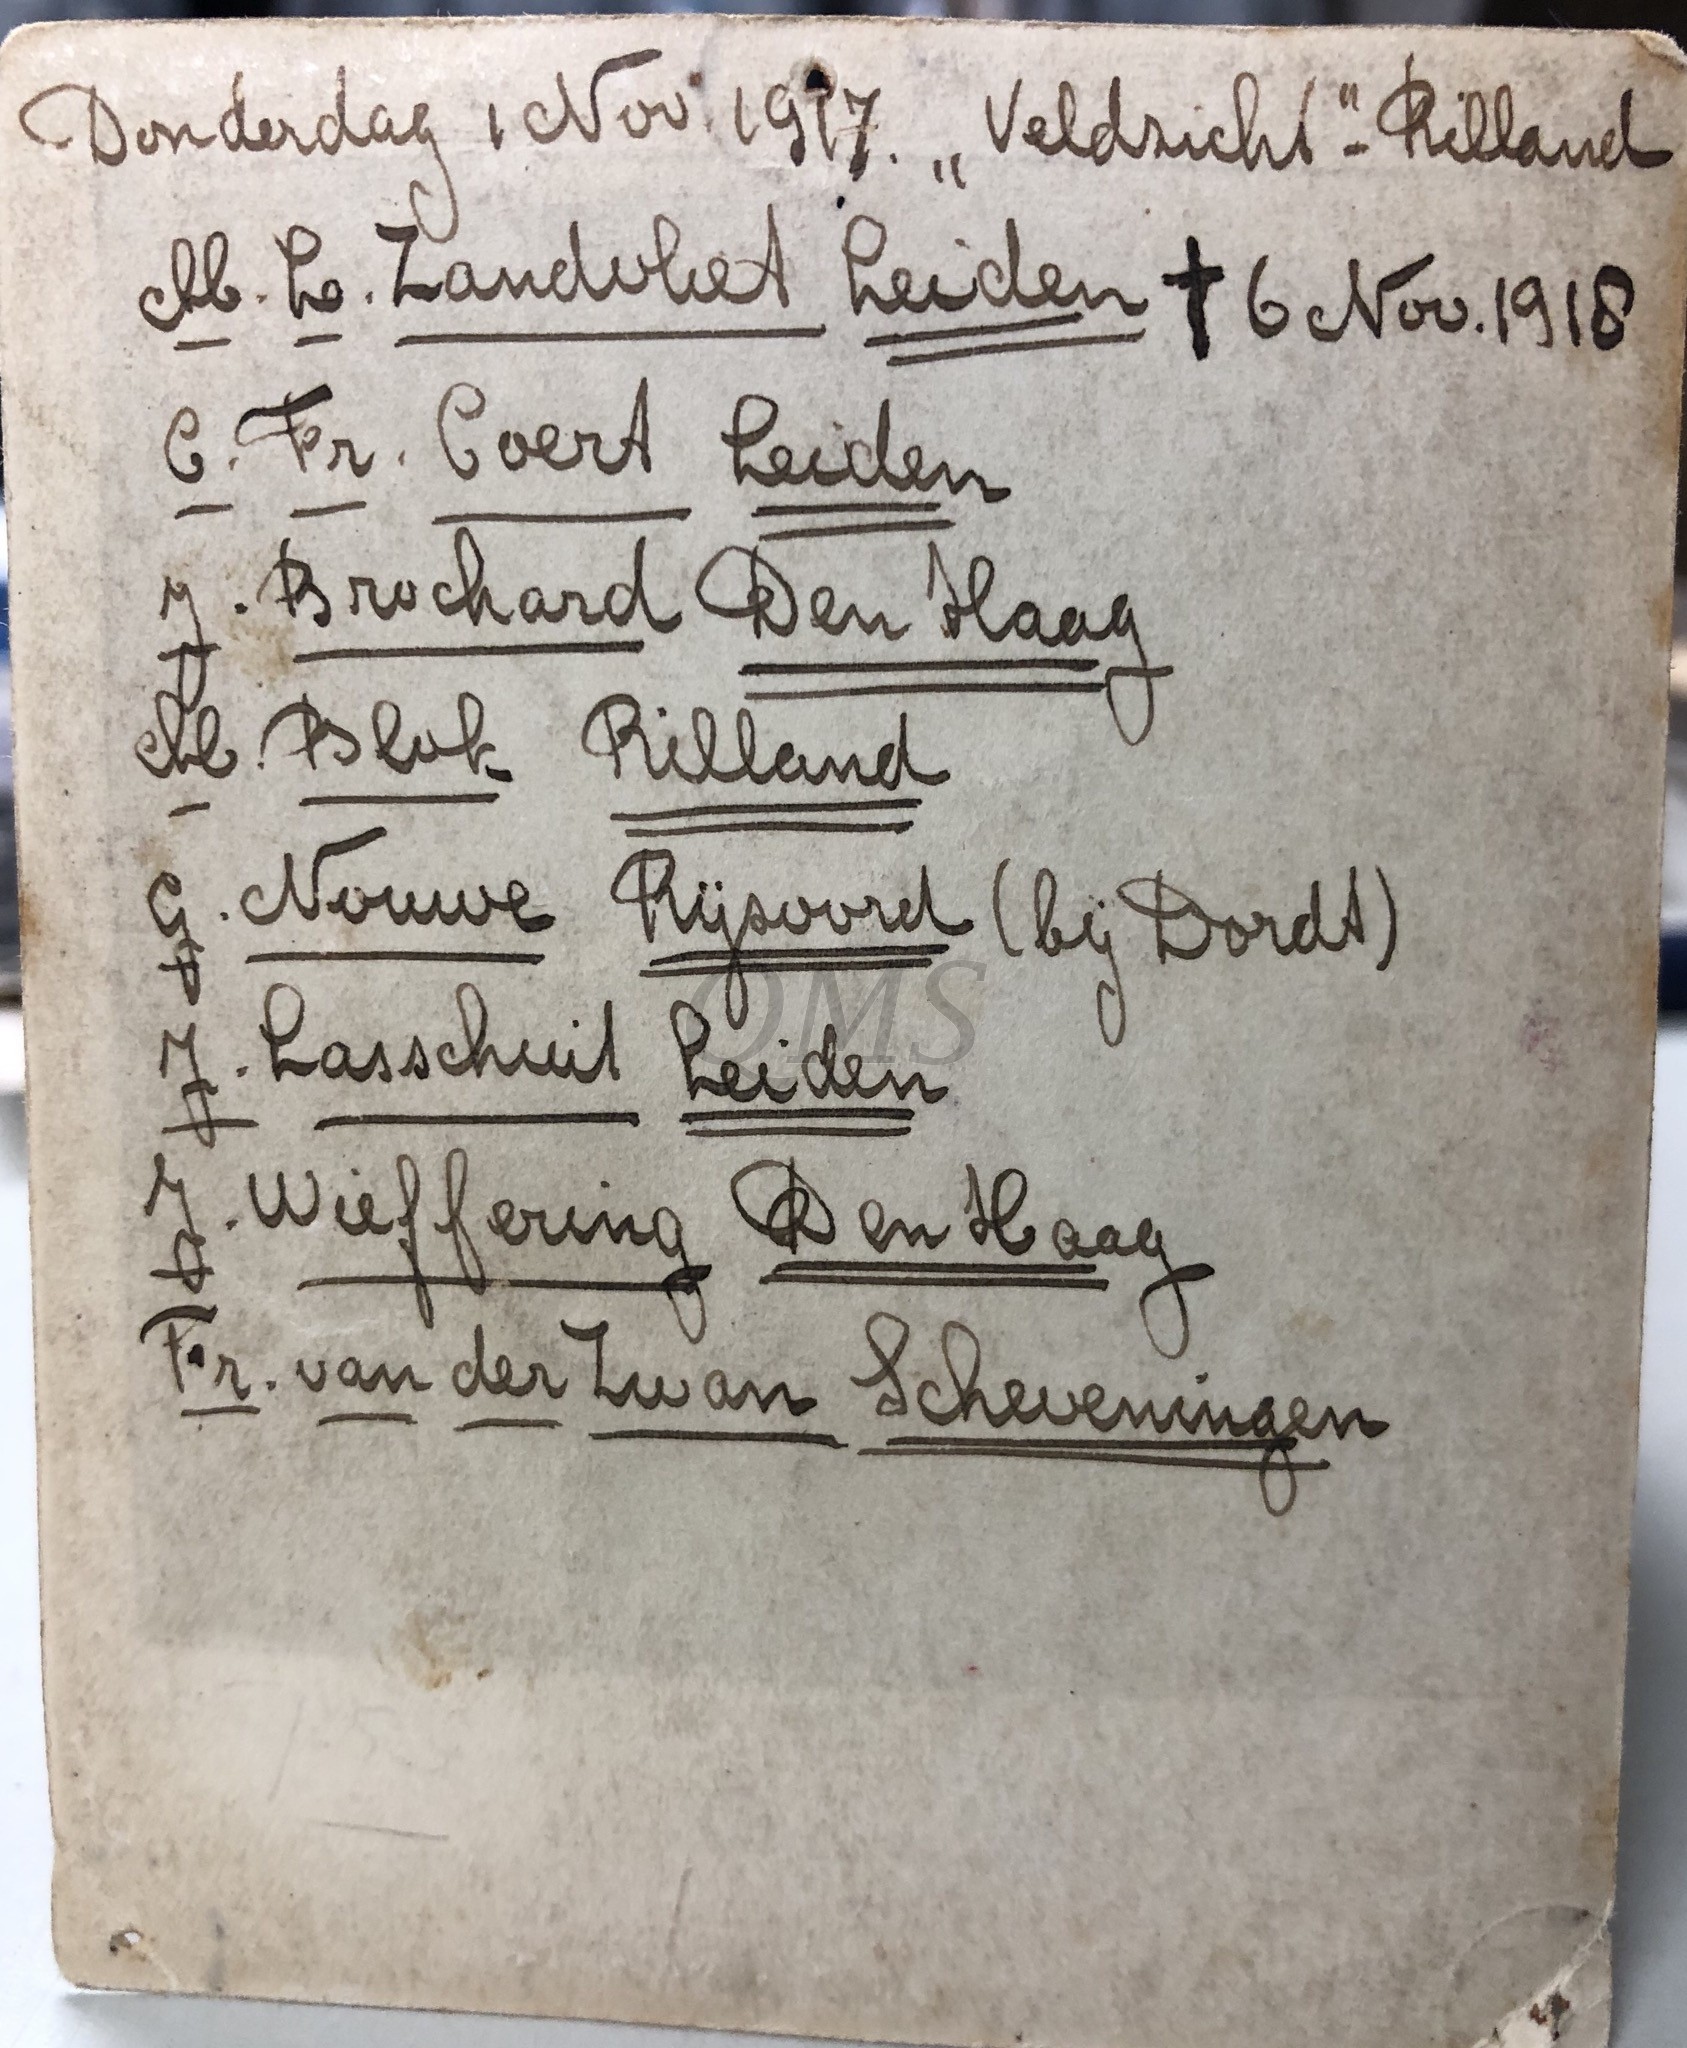 Donderdag 1 Nov. 1917. „Veldzicht"- Rilland
M. L. Zandvliet Leiden † 6 Nov. 1918
C. Fr. Coert Leiden
J. Brochard Den Haag
M. Blok Rilland
G. Nouwe Rijsoord (bij Dordt)
J. Lasschuit Leiden
J. Wieffering Den Haag
Fr. van der Zwan Scheveningen
OMS